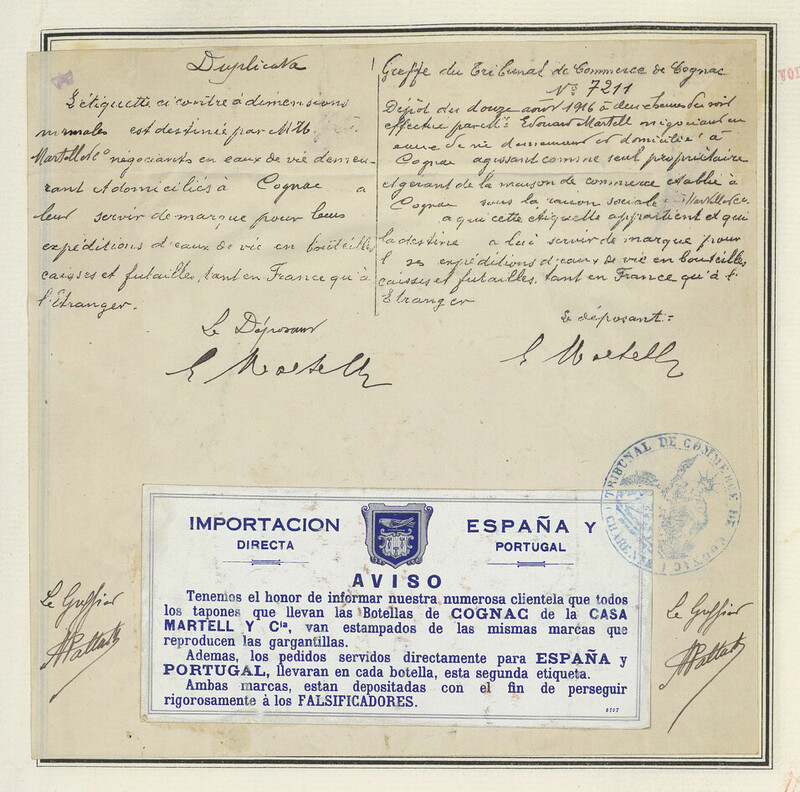 Duplicata
L'étiquette ci contre à dimensions
normales est destinée par MM
Martell & Cº négociants en eaux de vie demeu-
rant et domiciliés à Cognac a
leur servir de marque pour leurs
expéditions d'eaux de vie en bouteilles
caisses et futailles, tant en France qu'à
l'Étranger.
Le Déposant
E Martell
Greffe du Tribunal de Commerce de Cognac
Nº 7211
Dépôt du douze août 1916 à deux heures du soir
effectué par Mr Edouard Martell négociant en
eaux de vie demeurant et domicilié à
Cognac agissant comme seul propriétaire
et gérant de la maison de commerce établie à
Cognac sous la raison sociale Martell & Co
a qui cette étiquette appartient et qui
la destine a lui servir de marque pour
ses expéditions d'eaux de vie en bouteilles
caisses et futailles, tant en France qu'à l'
Etranger
Le déposant:
E Martell
TRIBUNAL DE COMMERCE DE COGNAC
CHARENTE
IMPORTACION
DIRECTA
ESPAÑA Y
PORTUGAL
AVISO
Tenemos el honor de informar nuestra numerosa clientela que todos
los tapones que llevan las Botellas de COGNAC de la CASA
MARTELL Y Cia, van estampados de las mismas marcas que
reproducen las gargantillas.
Ademas, los pedidos servidos directamente para ESPAÑA y
PORTUGAL, llevaran en cada botella, esta segunda etiqueta.
Ambas marcas, estan depositadas con el fin de perseguir
rigorosamente à los FALSIFICADORES.
8707
Le Greffier
Le Greffier